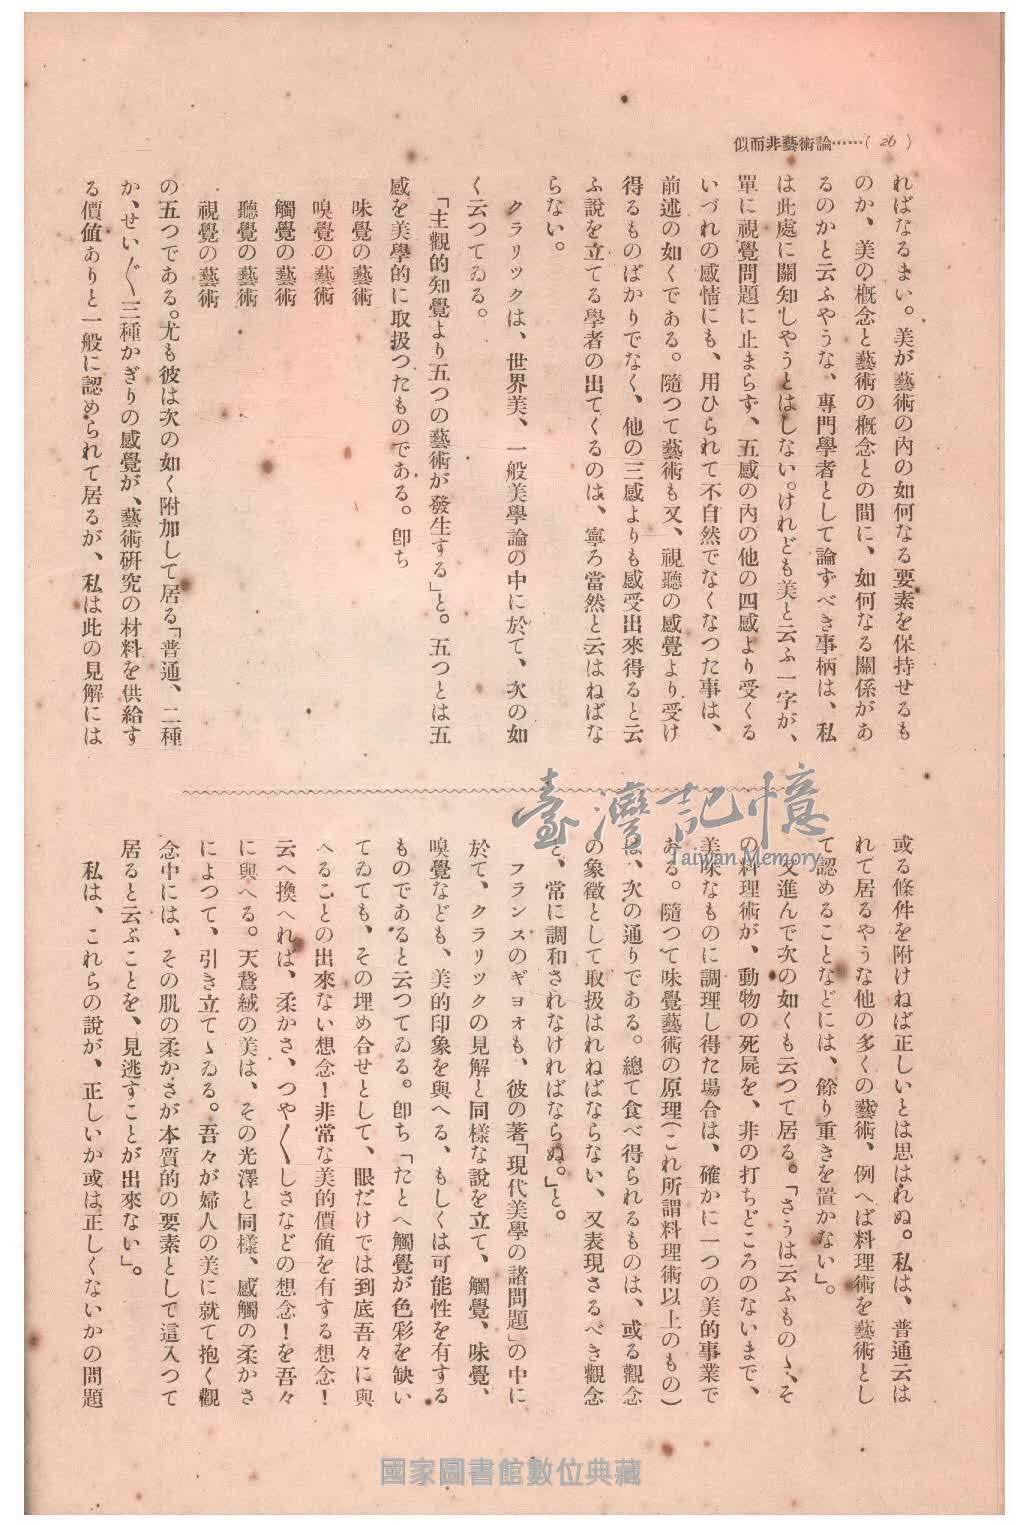 似而非藝術論……( 26 )
ればなるまい。美が藝術の内の如何なる要素を保持せるも
のか、美の概念と藝術の概念との間に、如何なる關係があ
るのかと云ふやうな、專門學者として論ずべき事柄は、私
は此處に關知しやうとはしない。けれども美と云ふ一字が、
單に視覺問題に止まらず、五感の内の他の四感より受くる
いづれの感情にも、用ひられて不自然でなくなつた事は、
前述の如くである。隨つて藝術も又、視聽の感覺より受け
得るものばかりでなく、他の三感よりも感受出來得ると云
ふ說を立てる學者の出てくるのは、寧ろ當然と云はねばな
らない。
クラリツクは、世界美、一般美學論の中に於て、次の如
く云つてゐる。
「主觀的知覺より五つの藝術が發生する」と。五つとは五
感を美學的に取扱つたものである。卽ち
味覺の藝術
嗅覺の藝術
觸覺の藝術
聽覺の藝術
視覺の藝術
の五つである。尤も彼は次の如く附加して居る「普通、二種
か、せい〴〵三種かぎりの感覺が、藝術硏究の材料を供給す
る價値ありと一般に認められて居るが、私は此の見解には
或る條件を附けねば正しいとは思はれぬ。私は、普通云は
れて居るやうな他の多くの藝術、例へば料理術を藝術とし
て認めることなどには、餘り重きを置かない」。
又進んで次の如くも云つて居る。「さうは云ふものゝ、そ
の料理術が、動物の死屍を、非の打ちどころのないまで、
美味なものに調理し得た場合は、確かに一つの美的事業で
ある。隨つて味覺藝術の原理(これ所謂料理術以上のもの)
は、次の通りである。總て食べ得られるものは、或る觀念
の象徵として取扱はれねばならない、又表現さるべき觀念
と、常に調和されなければならぬ。」と。
フランスのギョオも、彼の著「現代美學の諸問題」の中に
於て、クラリックの見解と同樣な說を立て、觸覺、味覺、
嗅覺なども、美的印象を與へる、もしくは可能性を有する
ものであると云つてゐる。卽ち「たとへ觸覺が色彩を缺い
てゐても、その埋め合せとして、眼だけでは到底吾々に與
へることの出來ない想念！非常な美的價値を有する想念！
云へ換へれば、柔かさ、つや〳〵しさなどの想念！を吾々
に與へる。天鵞絨の美は、その光澤と同樣、感觸の柔かさ
によつて、引き立てゝゐる。吾々が婦人の美に就て抱く觀
念中には、その肌の柔かさが本質的の要素として這入つて
居ると云ぶことを、見逃すことが出來ない」。
私は、これらの說が、正しいか或は正しくないかの問題
臺灣記憶
Taiwan Memory
國家圖書館數位典藏